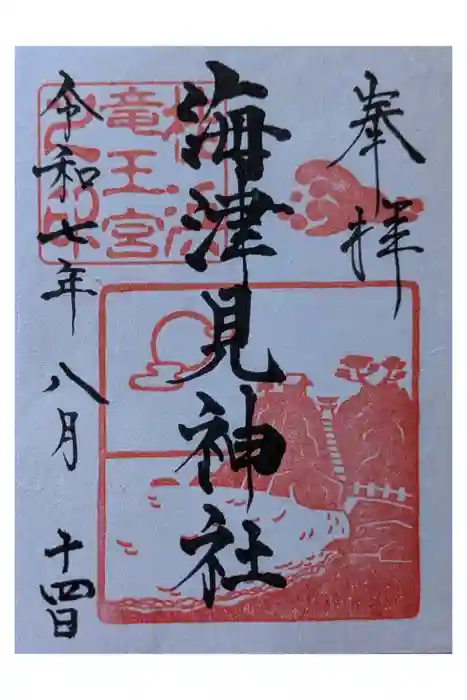 奉拝
海津見神社
桂浜
竜王宮
之印
令和七年 八月 十四日